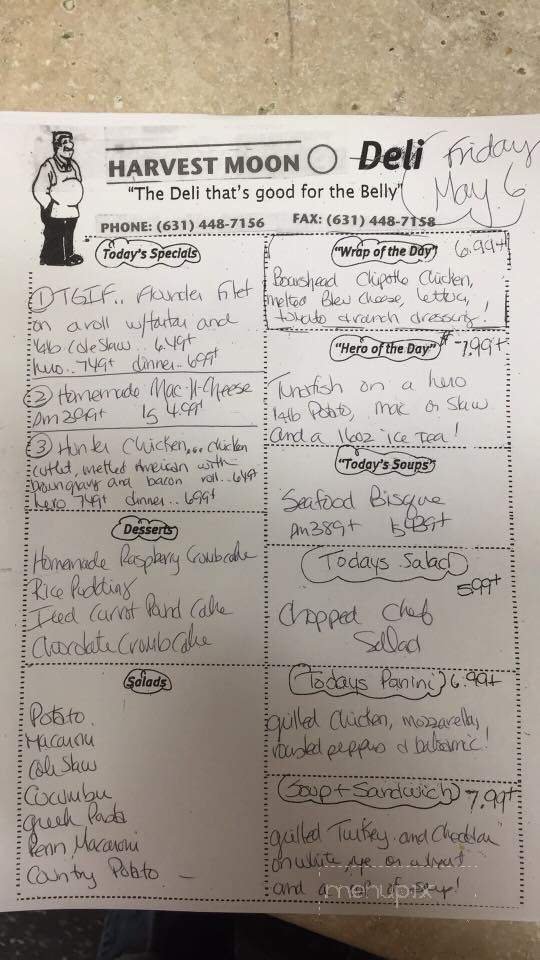 HARVEST MOON Deli
Friday
May 6
"The Deli that's good for the Belly"
PHONE: (631) 448-7156 FAX: (631) 448-7158
Today's Specials
① TGIF.. Flounder Filet
on a roll w/tartar and
1/4lb ColeSlaw... 6.49+
hero.. 7.49+ dinner.. 6.99+
② Homemade Mac-N-Cheese
sm 3.99+ lg 4.99+
③ Hunter Chicken... chicken
cutlet, melted American with
brown gravy and bacon roll.. 6.49+
hero 7.49+ dinner.. 6.99+
Desserts
Homemade Raspberry Crumbcake
Rice Pudding
Iced Carrot Pound Cake
Chocolate Crumb Cake
Salads
Potato
Macaroni
Cole Slaw
Cucumber
Greek Pasta
Penn Macaroni
Country Potato
"Wrap of the Day" 6.99+
Boarshead Chipotle Chicken,
melted Blew Cheese, lettuce,
tomato & ranch dressing!
"Hero of the Day" $7.99+
Tunafish on a hero
1/4lb Potato, mac or Slaw
and a 16oz ice Tea!
"Today's Soups"
Seafood Bisque
sm 3.89+ lg 4.39+
Todays Salad
5.99+
Chopped Chef
Salad
Todays Panini 6.99+
grilled Chicken, mozzarella,
roasted peppers & balsamic!
Soup + Sandwich 7.99+
grilled Turkey and Cheddar
on white, rye or wheat
and a cup of soup!
menupix